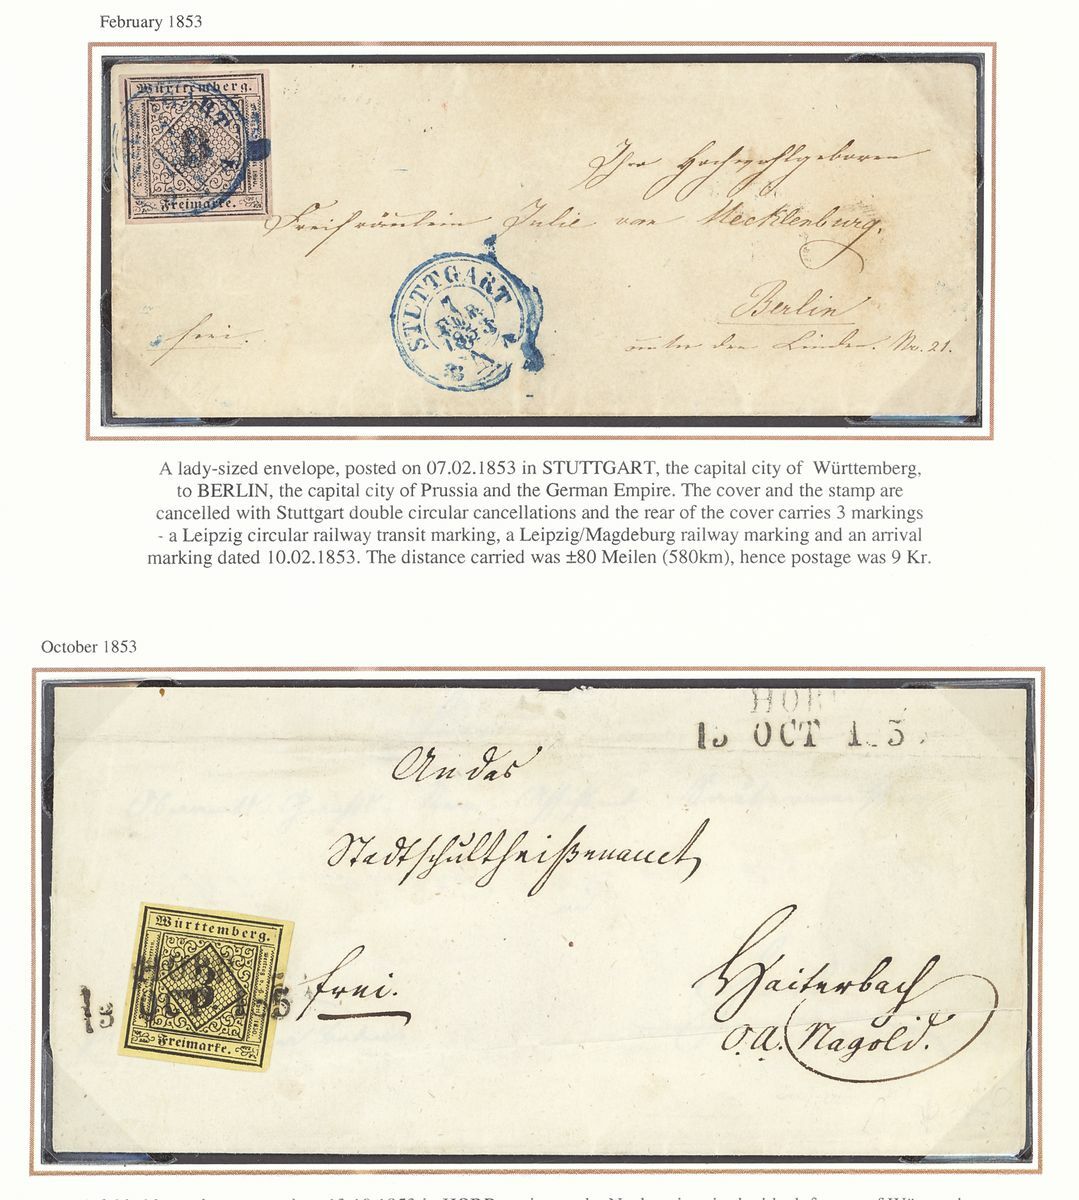 February 1853
Württemberg.
9
Freimarke.
Ihro Hochwohlgeboren
Freifräulein Julie von Mecklenburg.
STUTTGART
7
FEBR.
1853
Berlin
frei.
unter den Linden. No. 21.
A lady-sized envelope, posted on 07.02.1853 in STUTTGART, the capital city of Württemberg,
to BERLIN, the capital city of Prussia and the German Empire. The cover and the stamp are
cancelled with Stuttgart double circular cancellations and the rear of the cover carries 3 markings
- a Leipzig circular railway transit marking, a Leipzig/Magdeburg railway marking and an arrival
marking dated 10.02.1853. The distance carried was ±80 Meilen (580km), hence postage was 9 Kr.
October 1853
OCT
An das
Stadtschultheißenamt,
Württemberg.
3
Freimarke.
frei.
Haiterbach
O.A. Nagold.